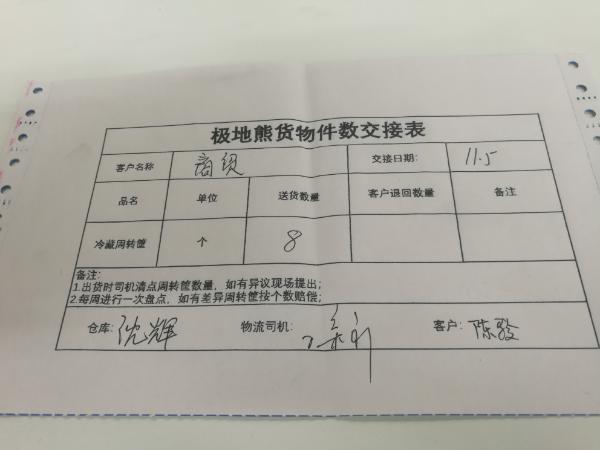 极地熊货物件数交接表
客户名称 交接日期: 11.5
品名 单位 送货数量 客户退回数量 备注
冷藏周转筐 个 8
备注:
1.出货时司机清点周转筐数量，如有异议现场提出;
2.每周进行一次盘点，如有差异周转筐按个数赔偿;
仓库: 沈辉 物流司机: 客户: 陈骏